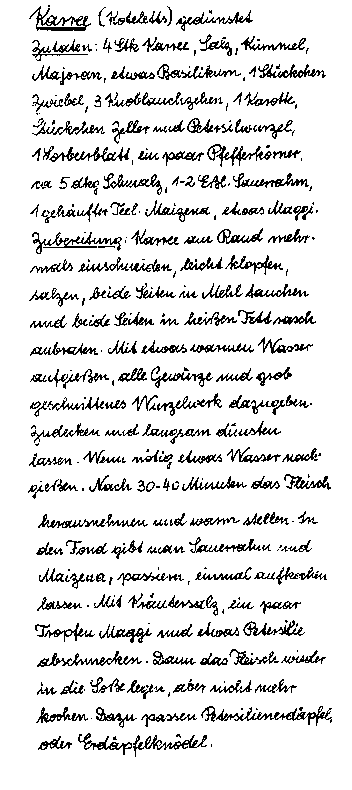 Karree (Koteletts) gedünstet
Zutaten: 4 Stk Karree, Salz, Kümmel,
Majoran, etwas Basilikum, 1 Stückchen
Zwiebel, 3 Knoblauchzehen, 1 Karotte,
Stückchen Zeller und Petersilwurzel,
1 Lorbeerblatt, ein paar Pfefferkörner,
ca 5 dkg Schmalz, 1-2 Eßl. Sauerrahm,
1 gehäufter Teel. Maizena, etwas Maggi.
Zubereitung: Karree am Rand mehr-
mals einschneiden, leicht klopfen,
salzen, beide Seiten in Mehl tauchen
und beide Seiten in heißen Fett rasch
anbraten. Mit etwas warmen Wasser
aufgießen, alle Gewürze und grob
geschnittenes Wurzelwerk dazugeben.
Zudecken und langsam dünsten
lassen. Wenn nötig etwas Wasser nach-
gießen. Nach 30-40 Minuten das Fleisch
herausnehmen und warm stellen. In
den Fond gibt man Sauerrahm und
Maizena, passieren, einmal aufkochen
lassen. Mit Kräutersalz, ein paar
Tropfen Maggi und etwas Petersilie
abschmecken. Dann das Fleisch wieder
in die Soße legen, aber nicht mehr
kochen. Dazu passen Petersilienerdäpfel,
oder Erdäpfelknödel.